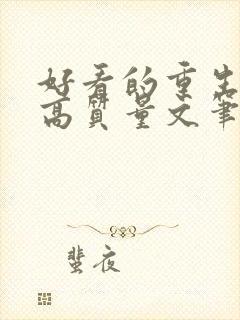 好看的重生
高质量文笔
蜚夜